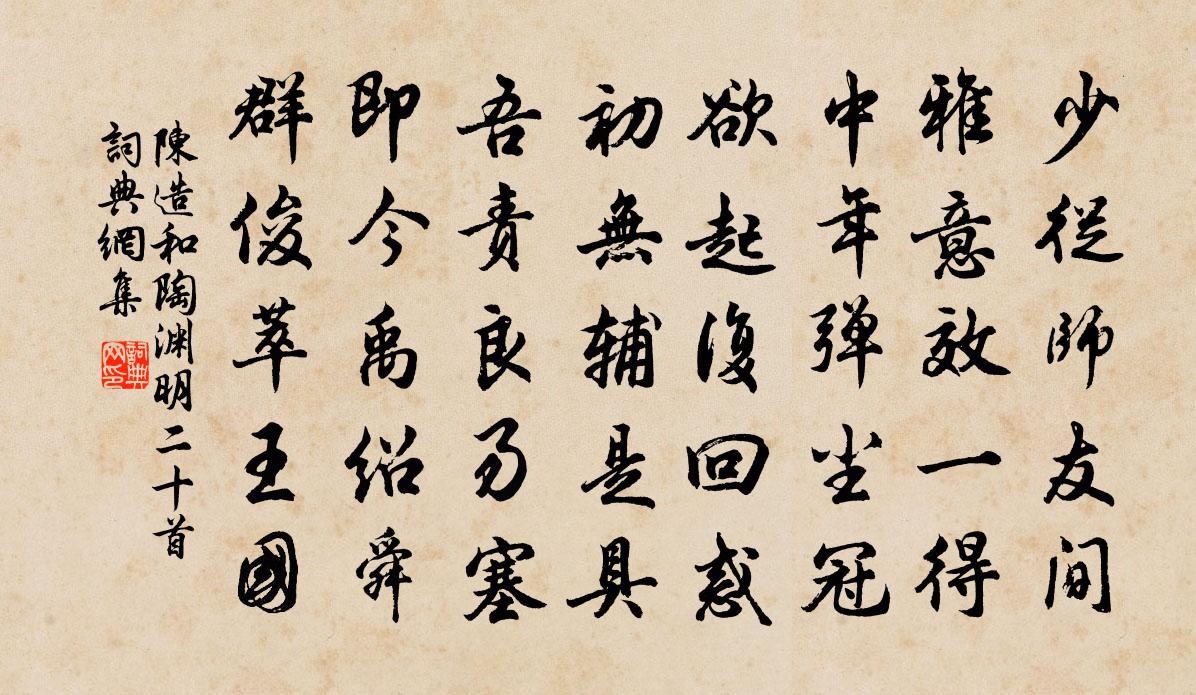 少從師友間
雅意效一得
中年彈坐冠
欲起復回惑
初無輔是具
吾責良易塞
即今禹紹舜
群俊萃王國
陳造和陶渊明二十首
詞典網集
詞典網印